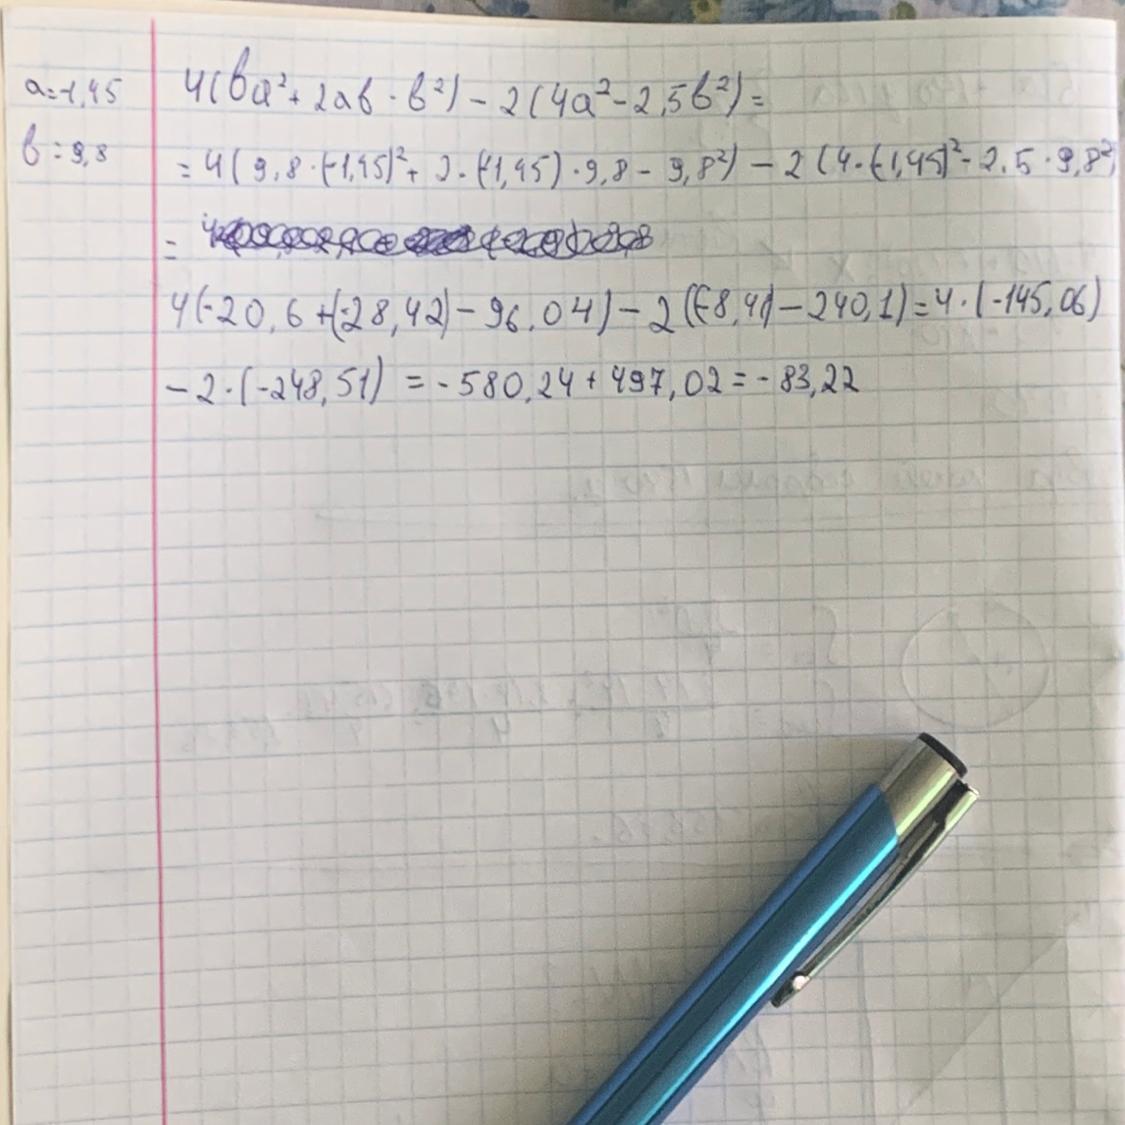 a=-1,45
4(ba²+2ab-b²)-2(4a²-2,5b²)=
b=9,8
=4(9,8·(-1,45)²+2·(-1,45)·9,8-9,8²)-2(4·(-1,45)²-2,5·9,8²)
=
4(-20,6+(-28,42)-96,04)-2((-8,41)-240,1)=4·(-145,06)
-2·(-248,51)=-580,24+497,02=-83,22